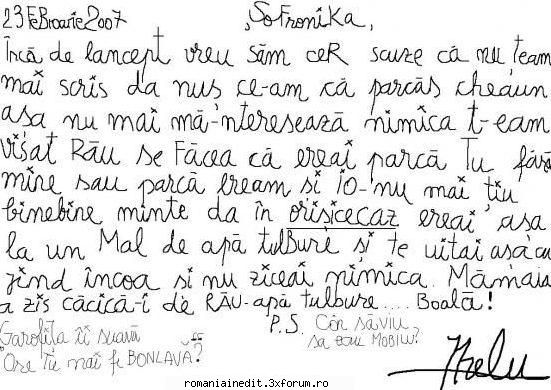 23 FeBroarie 2007 „SoFroniKa„
Încă de lancept vreu săm ceR scuze că nu team
mai scris da nuș ce-am că parcăs cheaun
așa nu mai mă-nteresează nimica t-eam
vișat Rău se Făcea că ereai parcă Tu fără
mine sau parcă eream și io-nu mai țiu
binebine minte da în orișicecaz ereai așa
la un Mal de apă tulbure și te uitai așa cu
jind încoa și nu ziceai nimica. Mămaia
a zis căcică-i de RĂU-apă tulbure.... Boală!
Garofița îi suavă
"Ore Tu mai fi BONLAVĂ"?
P.S. Cân săviu
sa MOBIU?
Jhelu
romaniainedit.3xforum.ro